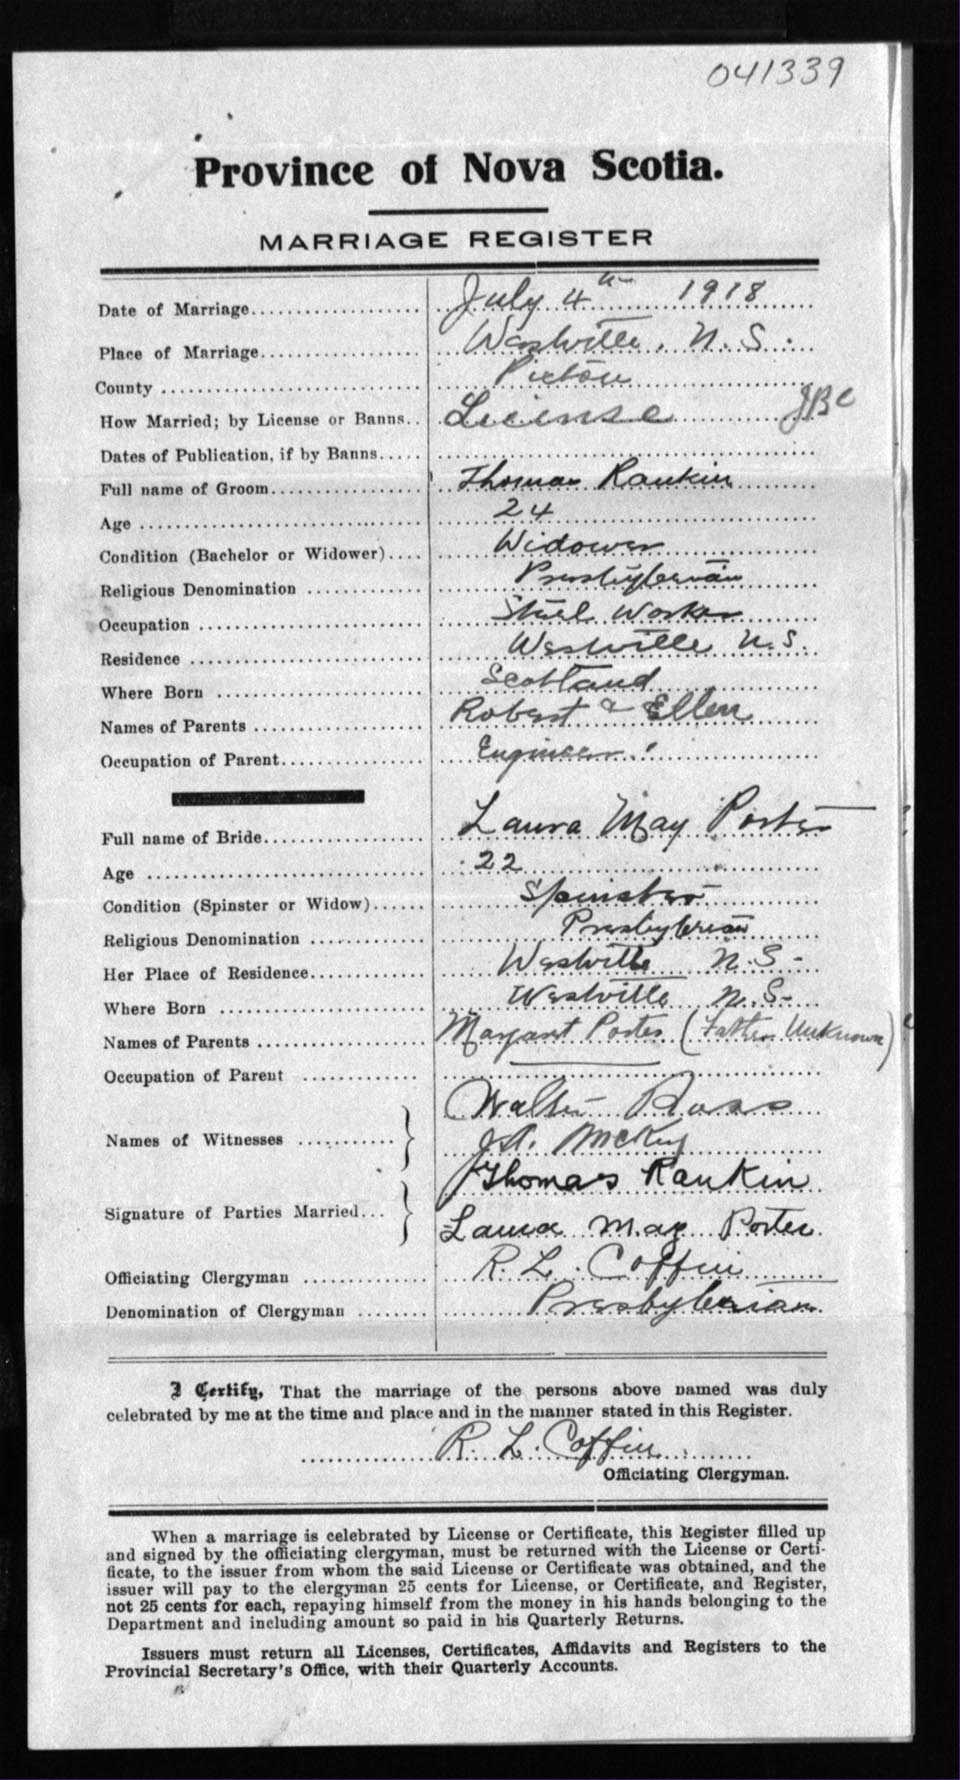 041339
Province of Nova Scotia.
MARRIAGE REGISTER
Date of Marriage July 4th 1918
Place of Marriage Westville, N.S.
County Pictou
How Married; by License or Banns License JBC
Dates of Publication, if by Banns
Full name of Groom Thomas Rankin
Age 24
Condition (Bachelor or Widower) Widower
Religious Denomination Presbyterian
Occupation Steel Worker
Residence Westville N.S.
Where Born Scotland
Names of Parents Robert & Ellen
Occupation of Parent Engineer
Full name of Bride Laura May Porter
Age 22
Condition (Spinster or Widow) Spinster
Religious Denomination Presbyterian
Her Place of Residence Westville N.S-
Where Born Westville N.S-
Names of Parents Margaret Porter (Father Unknown)
Occupation of Parent
Names of Witnesses Walter Ross
J.A. McKay
Signature of Parties Married Thomas Rankin
Laura May Porter.
Officiating Clergyman R. L. Coffin
Denomination of Clergyman Presbyterian
I Certify, That the marriage of the persons above named was duly
celebrated by me at the time and place and in the manner stated in this Register.
R. L. Coffin
Officiating Clergyman.
When a marriage is celebrated by License or Certificate, this Register filled up
and signed by the officiating clergyman, must be returned with the License or Certi-
ficate, to the issuer from whom the said License or Certificate was obtained, and the
issuer will pay to the clergyman 25 cents for License, or Certificate, and Register,
not 25 cents for each, repaying himself from the money in his hands belonging to the
Department and including amount so paid in his Quarterly Returns.
Issuers must return all Licenses, Certificates, Affidavits and Registers to the
Provincial Secretary's Office, with their Quarterly Accounts.